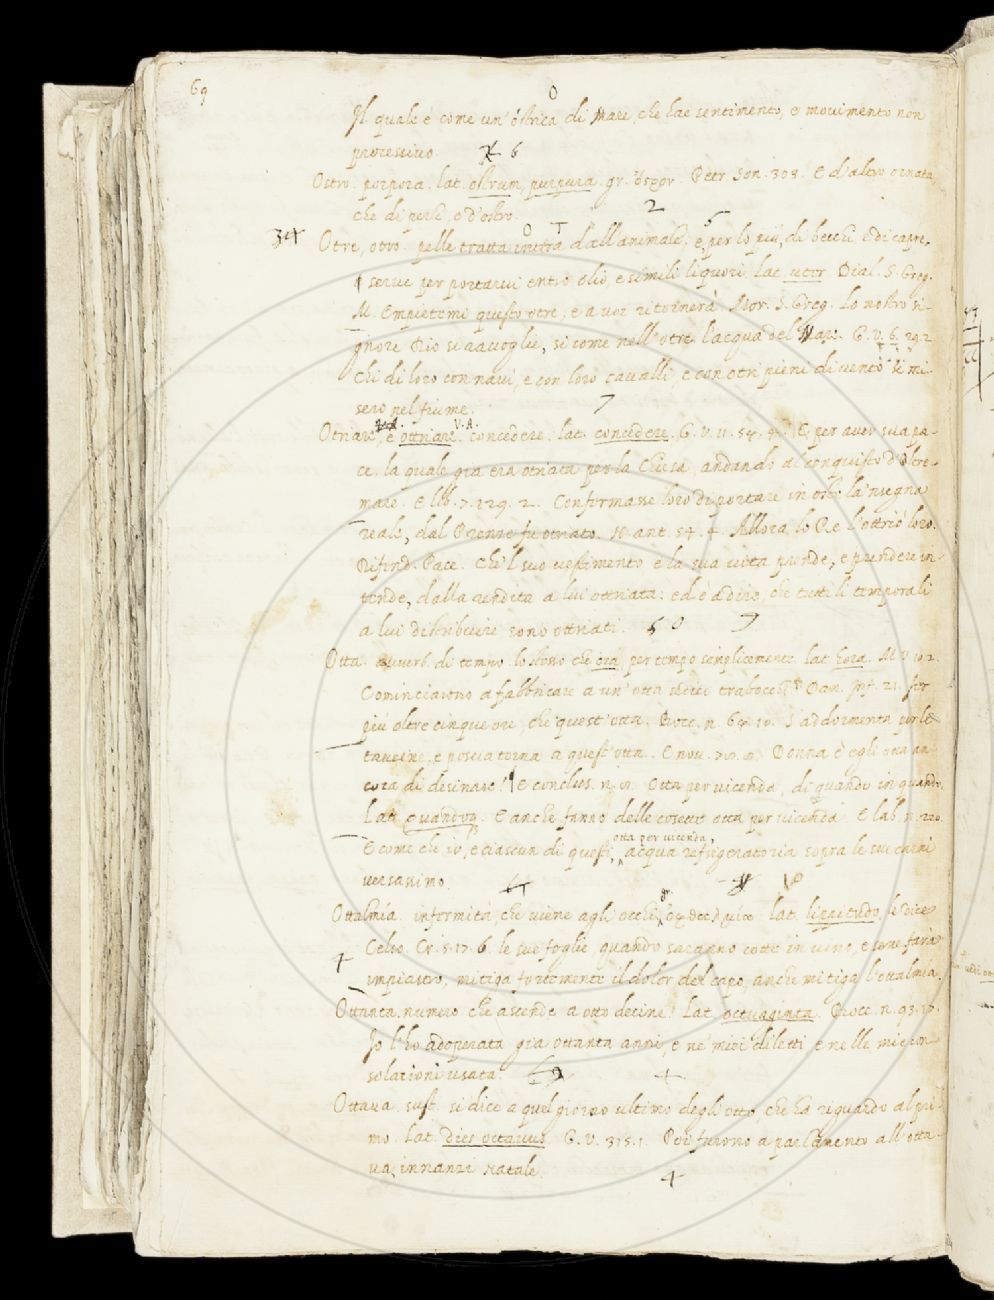 69
O
Il quale è come un'ostrica di Mare, che hae sentimento, e movimento non
processivo. 6
Ostro. porpora. lat. ostrum, purpura. gr. Petr. Son. 303. E d'altro ornata,
che di perle, o d'ostro. 2
34 Otre, otro. pelle tratta intera dall'animale, e, per lo più, di becchi, e di capre,
serve per portarvi entro olio, e simili liquori. lat. uter. Dial. S. Greg.
M. Empietemi questo otre, e a voi ritornerà. Mor. S. Greg. Lo nostro si-
gnore Dio si raccoglie, si come nell'otre l'acqua del Mare. G. V. 6. 29. 2.
Chi di loro con navi, e con loro cavalli, e con otri pieni di vento si mi-
sero nel fiume. 7
Otriare, e ottriare. V. A. concedere. lat. concedere. G. V. 11. 54. 4. E per aver sua pa-
ce, la quale gia era otriata per la Chiesa, andando al conquisto d'oltre-
mare. E lib. 7. 129. 2. Confermasse loro di portare in oste la 'nsegna
reale, dal Prenze fu otriato. N. ant. 54. 4. Allora lo Re l'ottriò loro.
Difend. Pace. Che 'l suo vestimento e la sua vita prende, e prendere in-
tende, dalla vendita a lui ottriata: ed è a dire, che tutti li temporali
a lui distribuire sono ottriati. 50
Otta. avverb. di tempo. lo stesso che ora, per tempo semplicemente. lat. hora. M. V. 10. 2.
Cominciarono a fabbricare a un'otta dieci trabocchi. Dan. Inf. 21. Ier
più oltre cinque ore, che quest'otta. Bocc. n. 64. 10. S'addormenta per le
taverne, e poscia torna a quest'otta. E nov. Donna è egli otta an-
cora di desinare? E conclus. n. Otta per vicenda, di quando in quando.
Lat. quandoq. E anche fanno delle cosette otta per vicenda. E lab. n. 220.
otta per vicenda,
E come che io, e ciascun di questi, acqua refrigeratoria sopra le sue carni
versassimo. 10
Ottalmía. infermità, che viene agli occhi, lat. lippitudo, le dice
Celso. Cr. 5. 17. 6. le sue foglie quando saranno cotte in vino, e come farai
impiastro, mitiga fortemente il dolor del capo, anche mitiga l'ottalmía.
Ottanta. numero che ascende a otto decine. Lat. octuaginta. Bocc. n. 93.
Io l'ho adoperata gia ottanta anni, e ne' miei diletti e nelle mie con-
solazioni usata.
Ottava. sust. si dice a quel giorno ultimo degli otto, che ha riguardo al pri-
mo. Lat. dies octavus. G. V. Poi furono a parlamento all'otta-
va innanzi Natale.